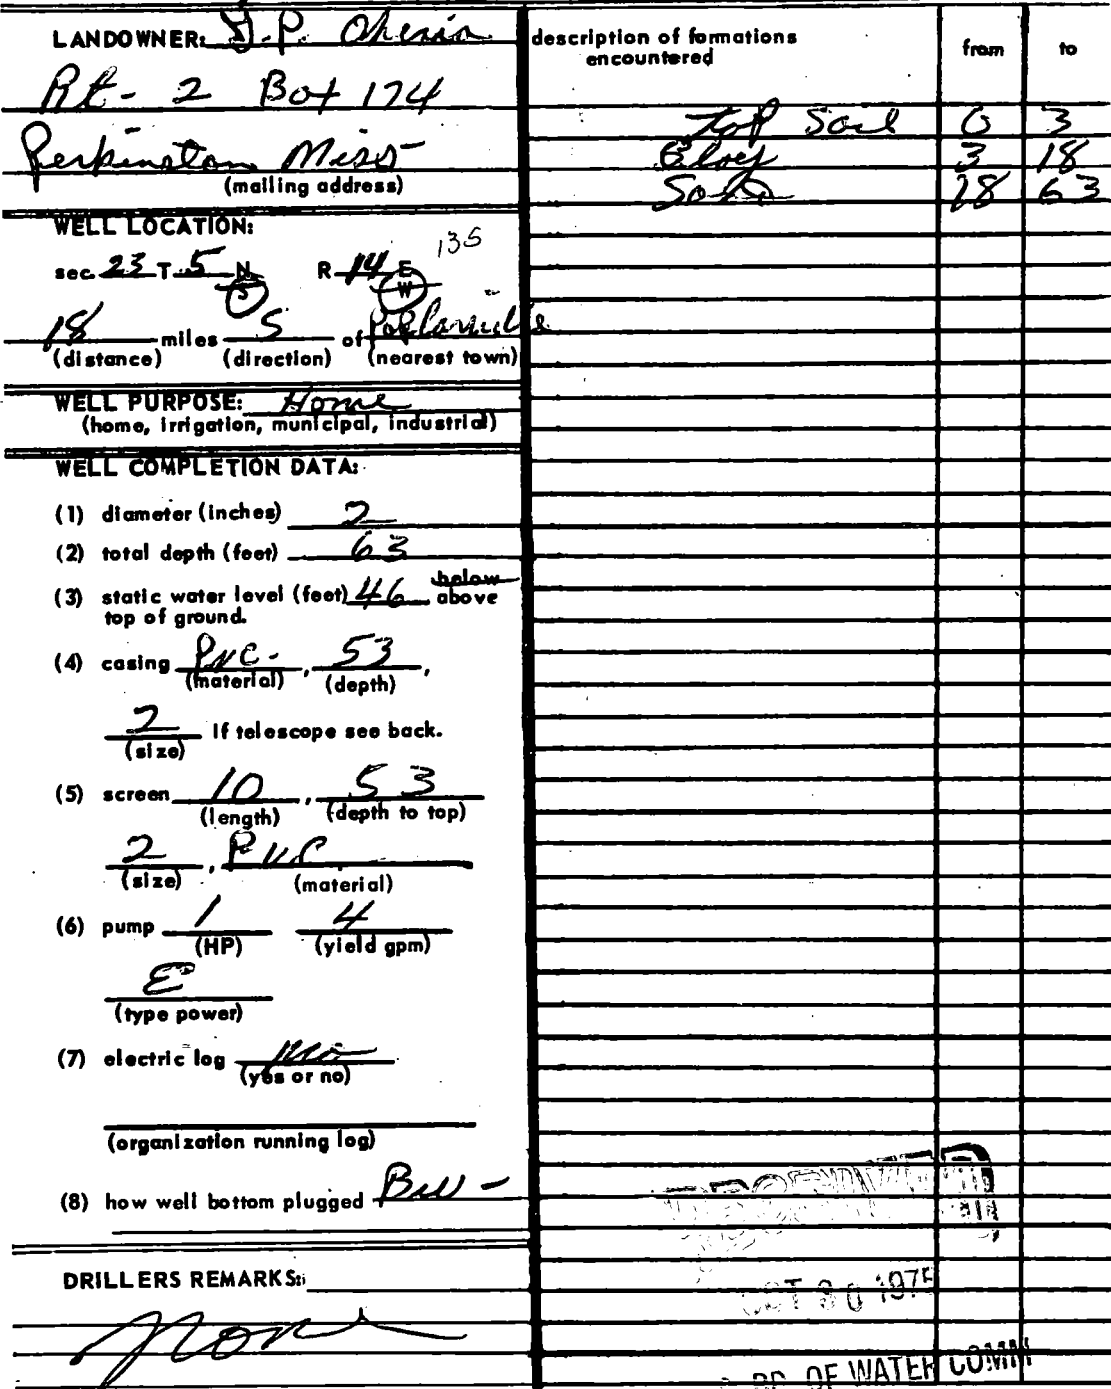 LANDOWNER: G.P.
Rt- 2 Box 174
Perkinston Miss
(mailing address)
WELL LOCATION:
135
sec. 23 T 5 N S R 14 E W
18 miles S of Poplarville
(distance) (direction) (nearest town)
WELL PURPOSE: Home
(home, irrigation, municipal, industrial)
WELL COMPLETION DATA:
(1) diameter (inches) 2
(2) total depth (feet) 63
(3) static water level (feet) 46 below above
top of ground.
(4) casing PVC- , 53 ,
(material) (depth)
2 If telescope see back.
(size)
(5) screen 10 , 53
(length) (depth to top)
2 , PVC
(size) (material)
(6) pump 1 4
(HP) (yield gpm)
E
(type power)
(7) electric log no
(yes or no)
(organization running log)
(8) how well bottom plugged
DRILLERS REMARKS:
None
description of formations encountered from to
top Soil 0 3
Clay 3 18
18 63
RECEIVED
OCT 30 1975
BD. OF WATER COMM